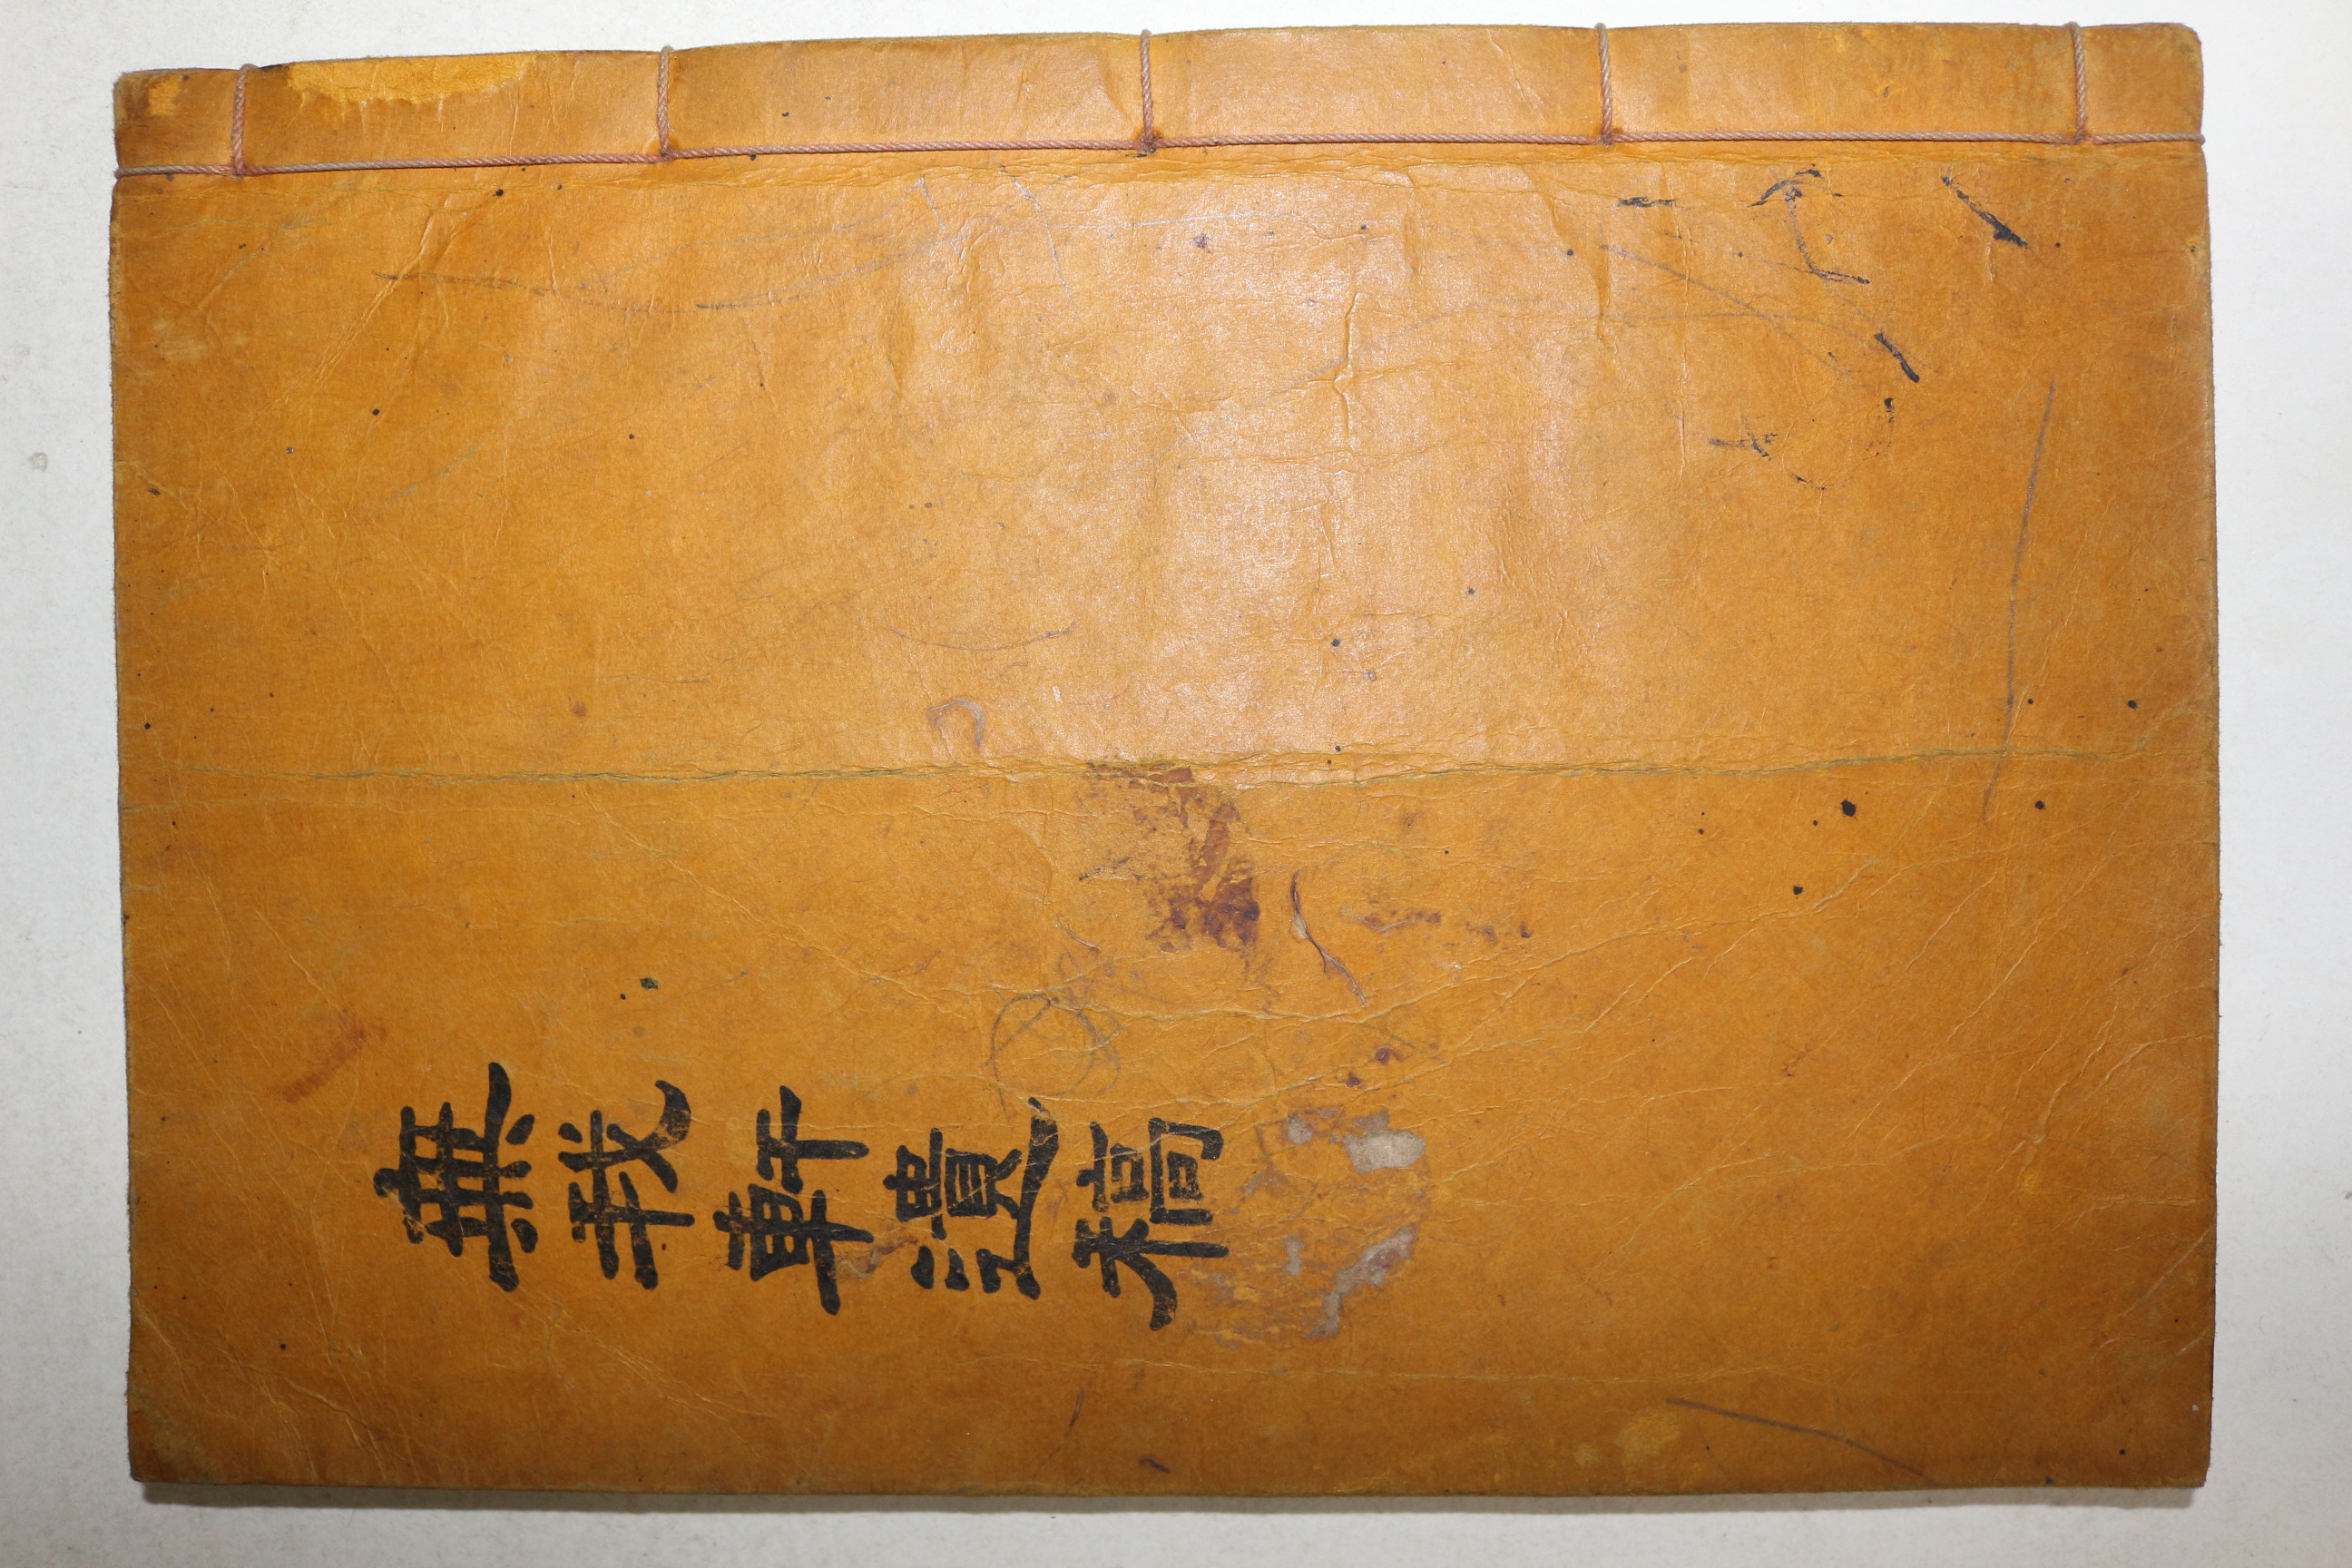 無我軒遺稿